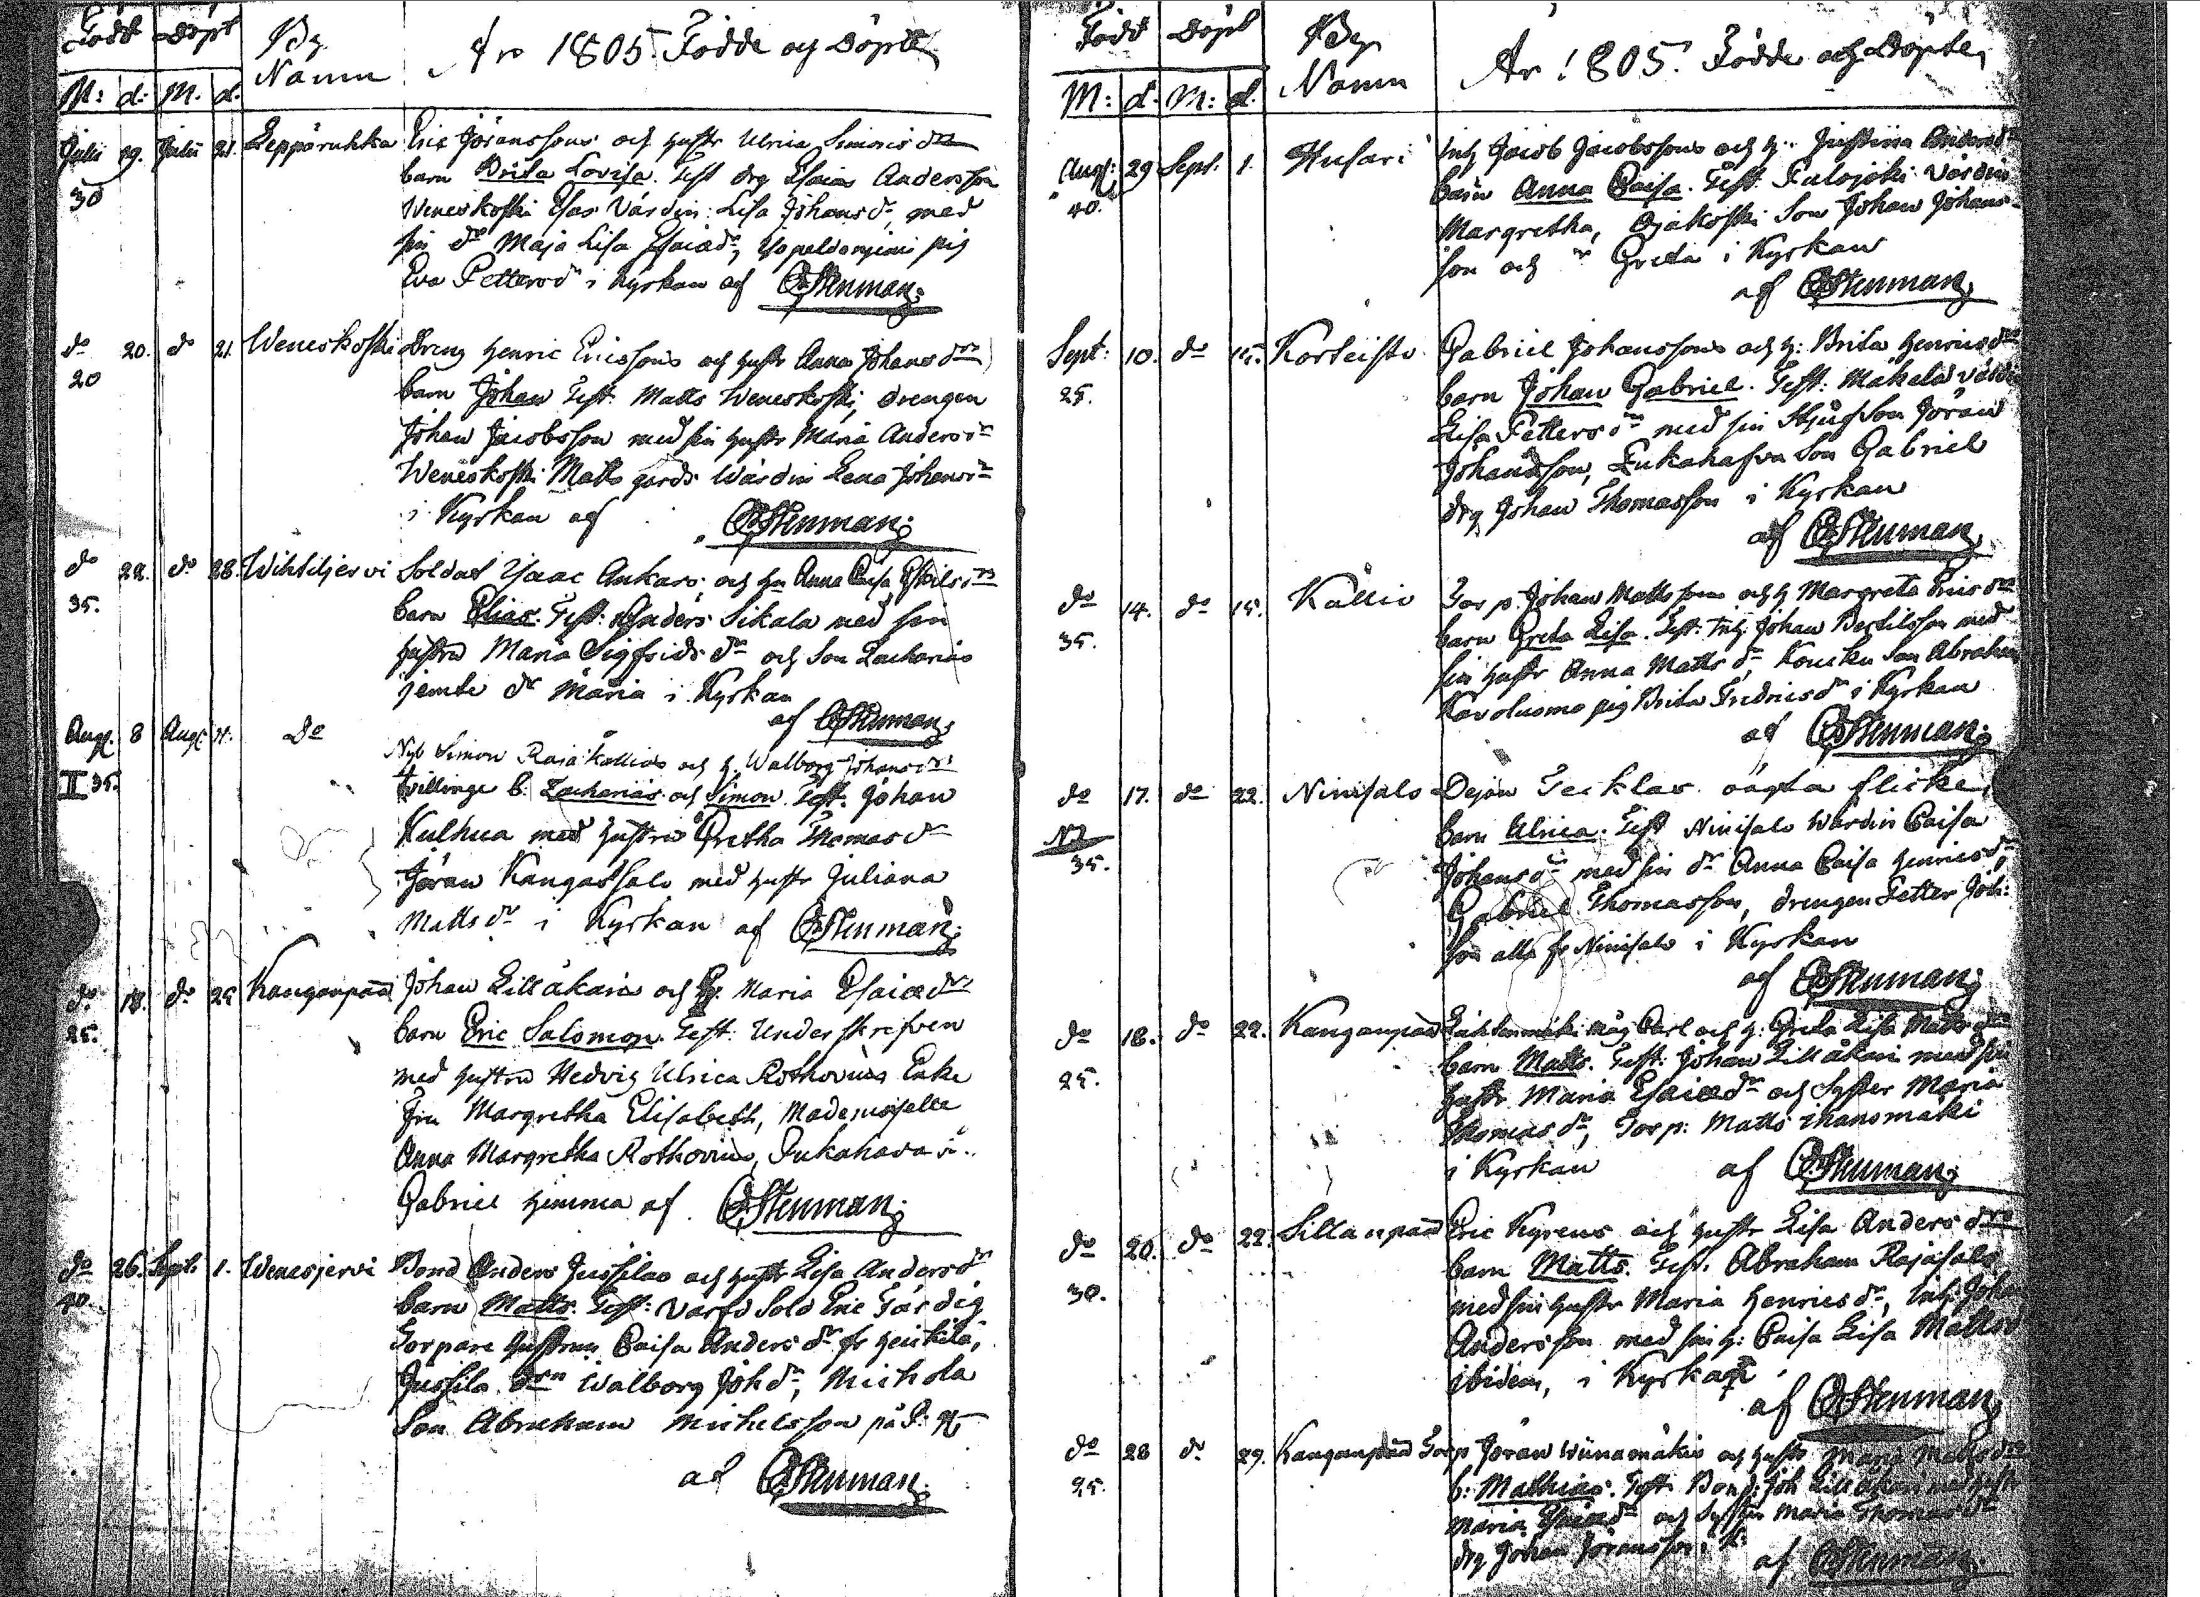 Född Döpt By Namn År 1805 Födde och Döpte
M: d: M. d.
Julii 19. Julii 21. Leppäruhka Eric Jöranssons och hustr Ulrica Simonsdrs
30 barn Brita Lovisa. Test drg Esaias Andersson
Weneskoski Esas Värdin: Lisa Johansdr med
sin dr Maja Lisa Esaiædr, pig
Eva Pettersdr i Kyrkan af CStenman.
do 20. do 21. Weneskoski Dreng Henric Ericssons och hustr Anna Johansdrs
20 barn Johan Test. Matts Weneskoski, drengen
Johan Jacobsson med sin hustr Maria Andersdr
Weneskoski Matts gårds Värdin Lena Johansdr
i Kyrkan af CStenman.
do 22. do 28. Wihtiljervi Soldat Isaac Ankars och hu Anna Caisa Eskilsdrs
35. barn Elias. Test: Anders Sikala med sin
hustru Maria Sigfridsdr och Son Zacharias
jemte dr Maria i Kyrkan
af CStenman.
Aug. 8 Aug. 11. do Nyb Simon Rajakallios och h. Walborg Johansdrs
II 35. tvillinge b. Zacharias och Simon. Test. Johan
Kulhua med hustru Gretha Thomasdr
Jöran Kangassalo med hustr Juliana
Mattsdr i Kyrkan af CStenman.
do 18. do 25 Kanganpää Johan Lilläkain och h. Maria Esaiædrs
25. barn Eric Salomon. Test. Underskrifven
med hustru Hedvig Ulrica Rothovius Enke
Fru Margretha Elisabeth, Mademoiselle
Anna Margretha Rothovius, Pukahava
Gabriel hemma af CStenman.
do 26. Sept. 1. Wenesjervi Bond Anders Jussilas och hustr Lisa Andersdr
40 barn Matts. Test: Varfd Sold Eric Färdig
Torpare hustrun Caisa Andersdr fr Heikilä,
Jussila drn Walborg Johdr, Michola
Son Abraham Michelsson på
af CStenman.
Född Döpt By Namn År 1805. Födde och Döpte
M: d. M: d.
Aug: 29 Sept. 1. Husari Inh Jacob Jacobssons och h. Justina Andersdr
40. barn Anna Caisa. Test. Pulojoki Värdin
Margretha, Ojakoski Son Johan Johans-
son och dr Greta i Kyrkan
af CStenman.
Sept: 10. do 15. Korteisto Gabriel Johanssons och h: Brita Henricsdrs
25. barn Johan Gabriel. Test: Makela värdin
Lisa Pettersdr med sin Stjufson Jöran
Johansson, Pukahafva Son Gabriel
drg Johan Thomasson i Kyrkan
af CStenman.
do 14. do 15. Kållio Torp. Johan Mattssons och h Margreta Ericsdrs
35. barn Greta Lisa. Test. Inh. Johan Bertilsson med
sin hustr Anna Mattsdr, Koucku Son Abraham
Karoluoma pig Brita Fredricsdr i Kyrkan
af CStenman.
do 17. do 22. Ninisalo Dejan Tecklas oägta flicke
N2 35. barn Ulrica. Test Ninisalo Wärdin Caisa
Johansdr med sin dr Anna Caisa Henricsdr,
Gabriel Thomasson, drengen Petter Joh:
son alla fr Ninisalo i Kyrkan
af CStenman.
do 18. do 22. Kanganpää Lähtenmäki måg Carl och h: Greta Lisa Mattsdrs
25. barn Matts. Test: Johan Lilläkain med sin
hustr Maria Esaiædr och Syster Maria
Thomasdr, Torp: Matts Ihansmäki
i Kyrkan af CStenman.
do 20. do 22. Sillanpää Eric Kyrens och hustr Lisa Andersdrs
30. barn Matts. Test. Abraham Rajasalo
med sin hustr Maria Henricsdr, Inh: Johan
Andersson med sin h: Caisa Lisa Mattsdr
ibidem, i Kyrkan
af CStenman
do 28 do 29. Kanganpää Torp Jöran Wiinamäkis och hustr Maria Mattsdrs
25. b: Mathias. Test. Bond: Joh Lilläkain med hustr
Maria Esaiædr och Syster Maria Thomasdr
drg Johan Jöransson i K.
af CStenman.